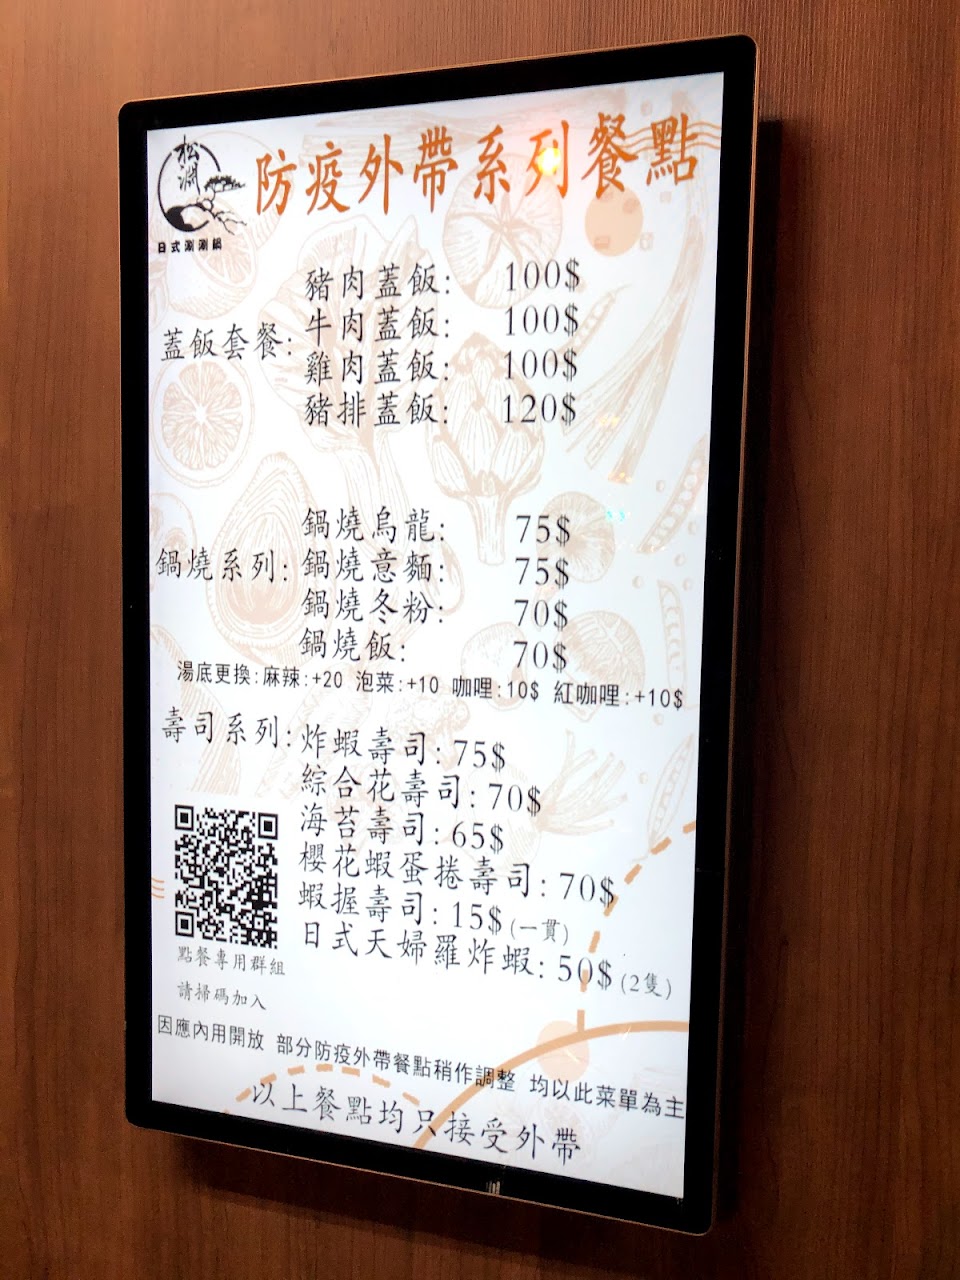 松淵
日式涮涮鍋
防疫外帶系列餐點
蓋飯套餐:
豬肉蓋飯: 100$
牛肉蓋飯: 100$
雞肉蓋飯: 100$
豬排蓋飯: 120$
鍋燒系列:
鍋燒烏龍: 75$
鍋燒意麵: 75$
鍋燒冬粉: 70$
鍋燒飯: 70$
湯底更換:麻辣:+20 泡菜:+10 咖哩:10$ 紅咖哩:+10$
壽司系列:
炸蝦壽司: 75$
綜合花壽司: 70$
海苔壽司: 65$
櫻花蝦蛋捲壽司: 70$
蝦握壽司: 15$(一貫)
日式天婦羅炸蝦: 50$(2隻)
點餐專用群組
請掃碼加入
因應內用開放 部分防疫外帶餐點稍作調整 均以此菜單為主
以上餐點均只接受外帶